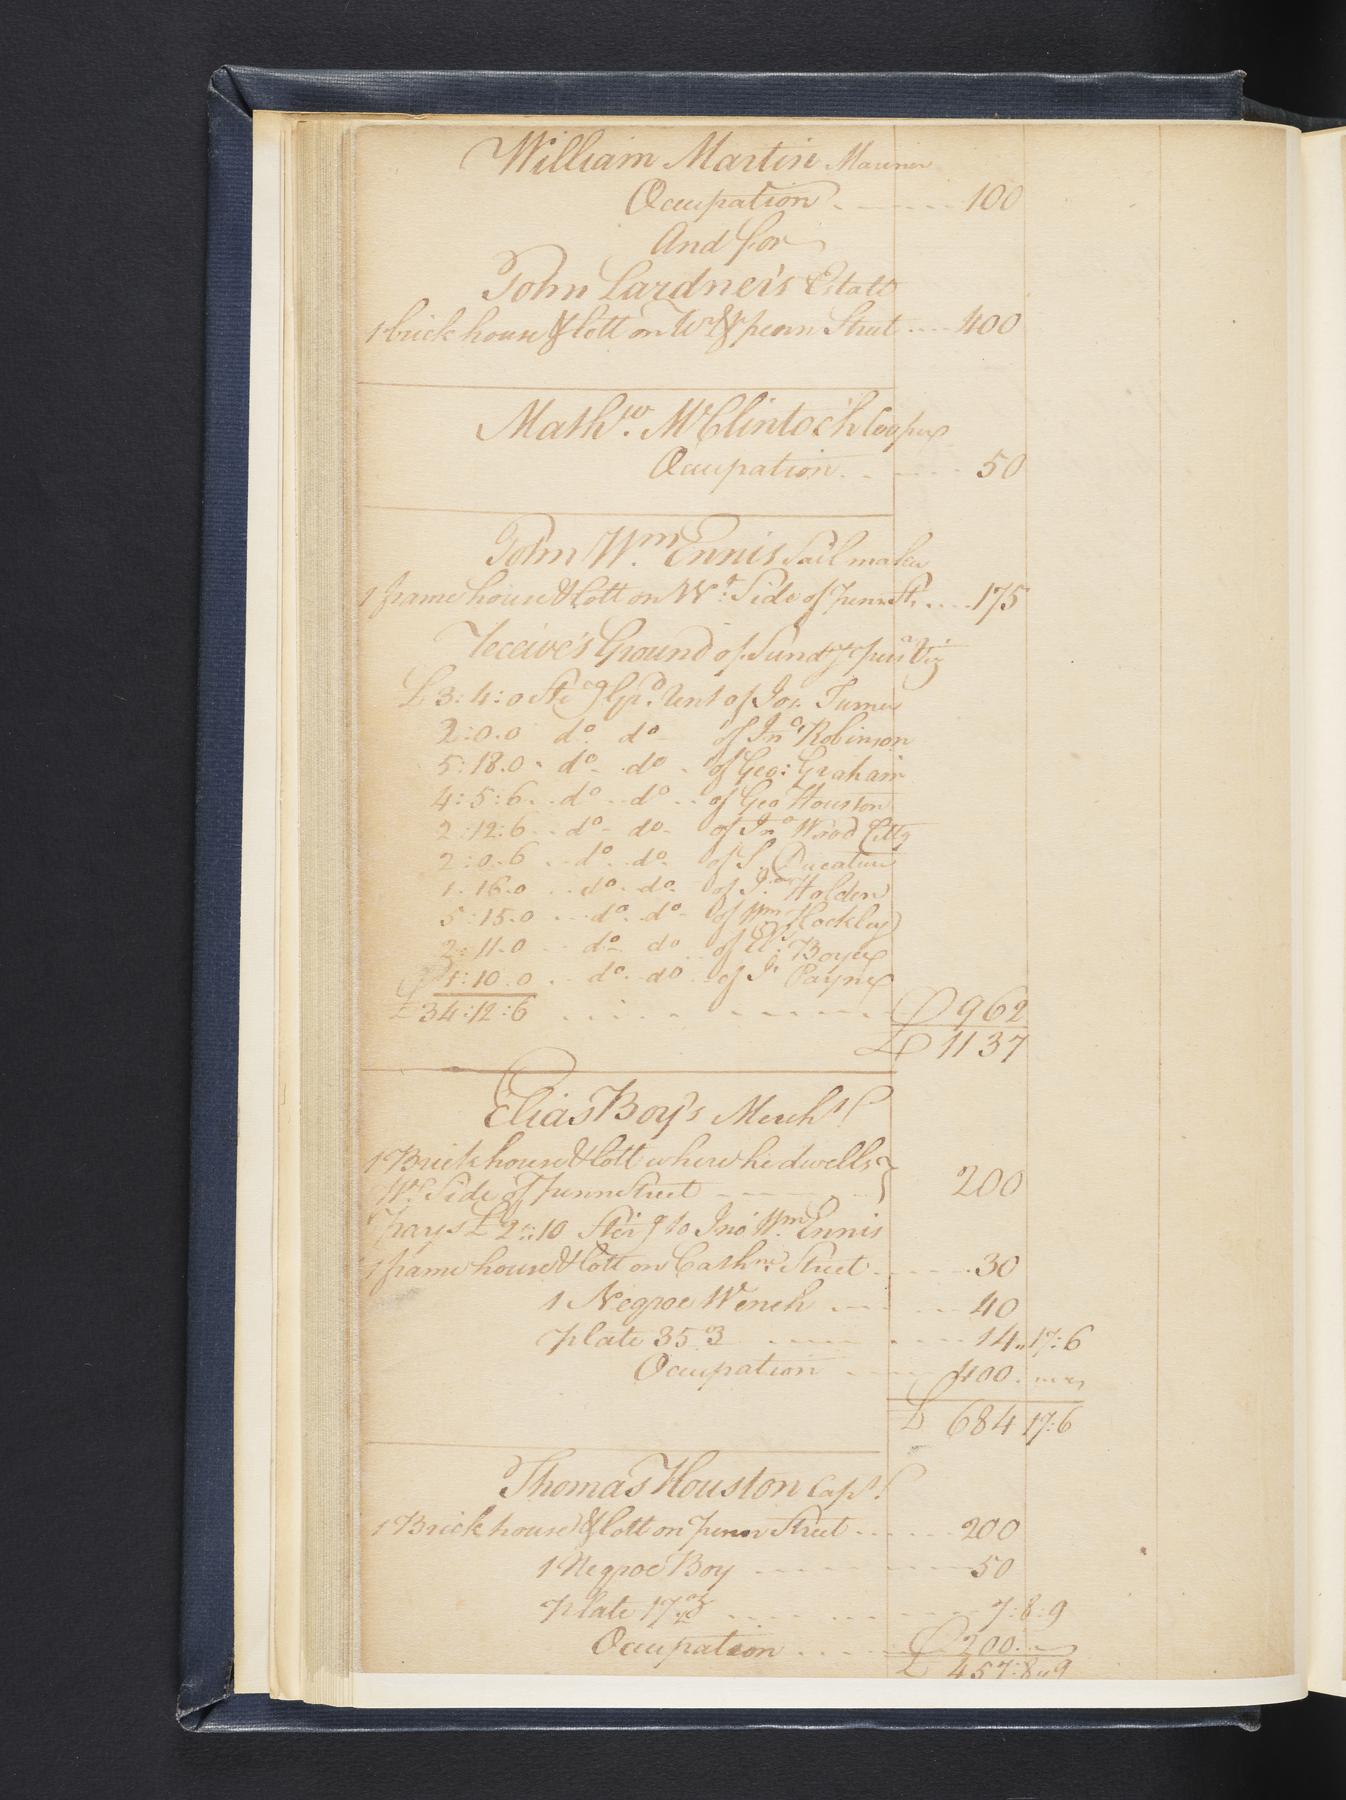 William Martin Mariner
Occupation 100
And for
John Lardner's Estate
1 brick house & lott on Wr & penn Street 400
Mathw. McClintock Cooper
Occupation 50
John Wm. Ennis Sail maker
1 frame house & lott on Wt. Side of penn St. 175
Receive's Ground of Sundy
£3:4:0 Sterg Grd. Rent of Jos. Turner
2:0.0 do. do of Jno Robinson
5:18.0 do. do of Geo: Graham
4:5:6 do do of Geo Houston
2:12:6 do do of Jno Wood
2:0.6 do. do. of S.
1.16.0 do. do. of Holden
5:15.0 do. do of Wm Hockley
2:11.0 do. do of Els: Boyes
4:10.0 do. do of Js Payne
£34:12:6 962
£ 1137
Elias Boy's Mercht
1 Brick house & lott where he dwells
Wt. Side of penn Street 200
pays £2:10 Sterg to Jno Wm Ennis
1 frame house & lott on Cathne. Street 30
1 Negroe Wench 40
plate 35 oz 14,,17:6
Occupation 400
£ 684 17:6
Thomas Houston Capt.
1 Brick house & lott on penn Street 200
1 Negroe Boy 50
plate 17 7:8:9
Occupation 200
£ 457:8,,9